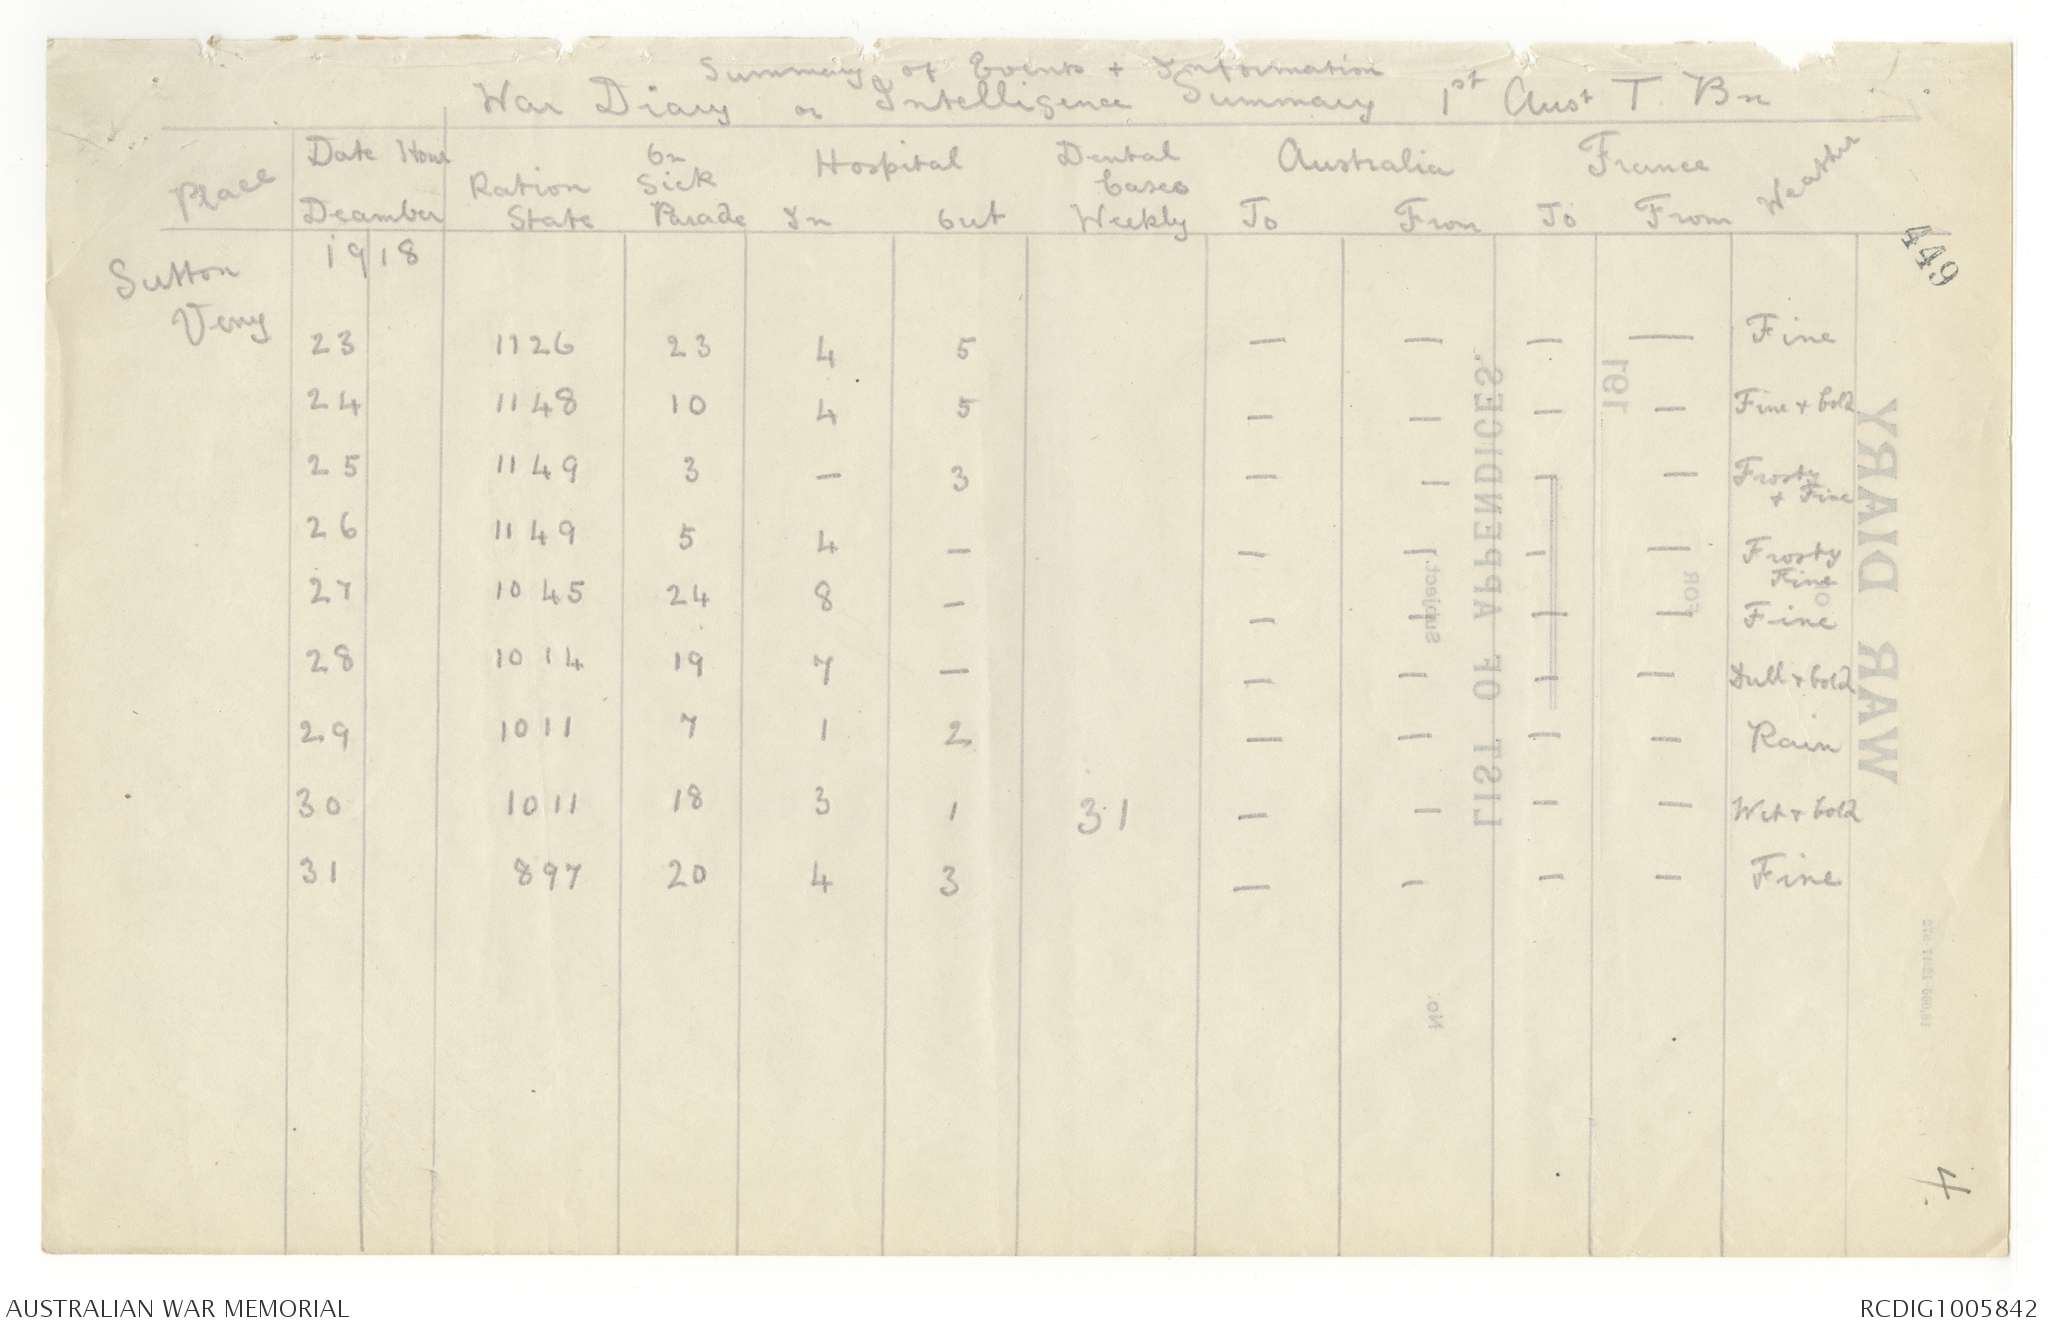 Summary of Events + Information
War Diary or Intelligence Summary 1st Aust T. Bn
Place Date Hour Ration State On Sick Parade Hospital Dental Cases Weekly Australia France Weather
Deamber In Out To From To From
Sutton Veny 1918
23 1126 23 4 5 — — — — Fine
24 1148 10 4 5 — — — — Fine + Cold
25 1149 3 — 3 — — — — Frosty + Fine
26 1149 5 4 — — — — — Frosty Fine
27 1045 24 8 — — — — — Fine
28 1014 19 7 — — — — — Dull + Cold
29 1011 7 1 2 — — — — Rain
30 1011 18 3 1 31 — — — — Wet + Cold
31 897 20 4 3 — — — — Fine
449
WAR DIARY
FOR
191
LIST OF APPENDICES.
Subject.
No.
4
AUSTRALIAN WAR MEMORIAL
RCDIG1005842